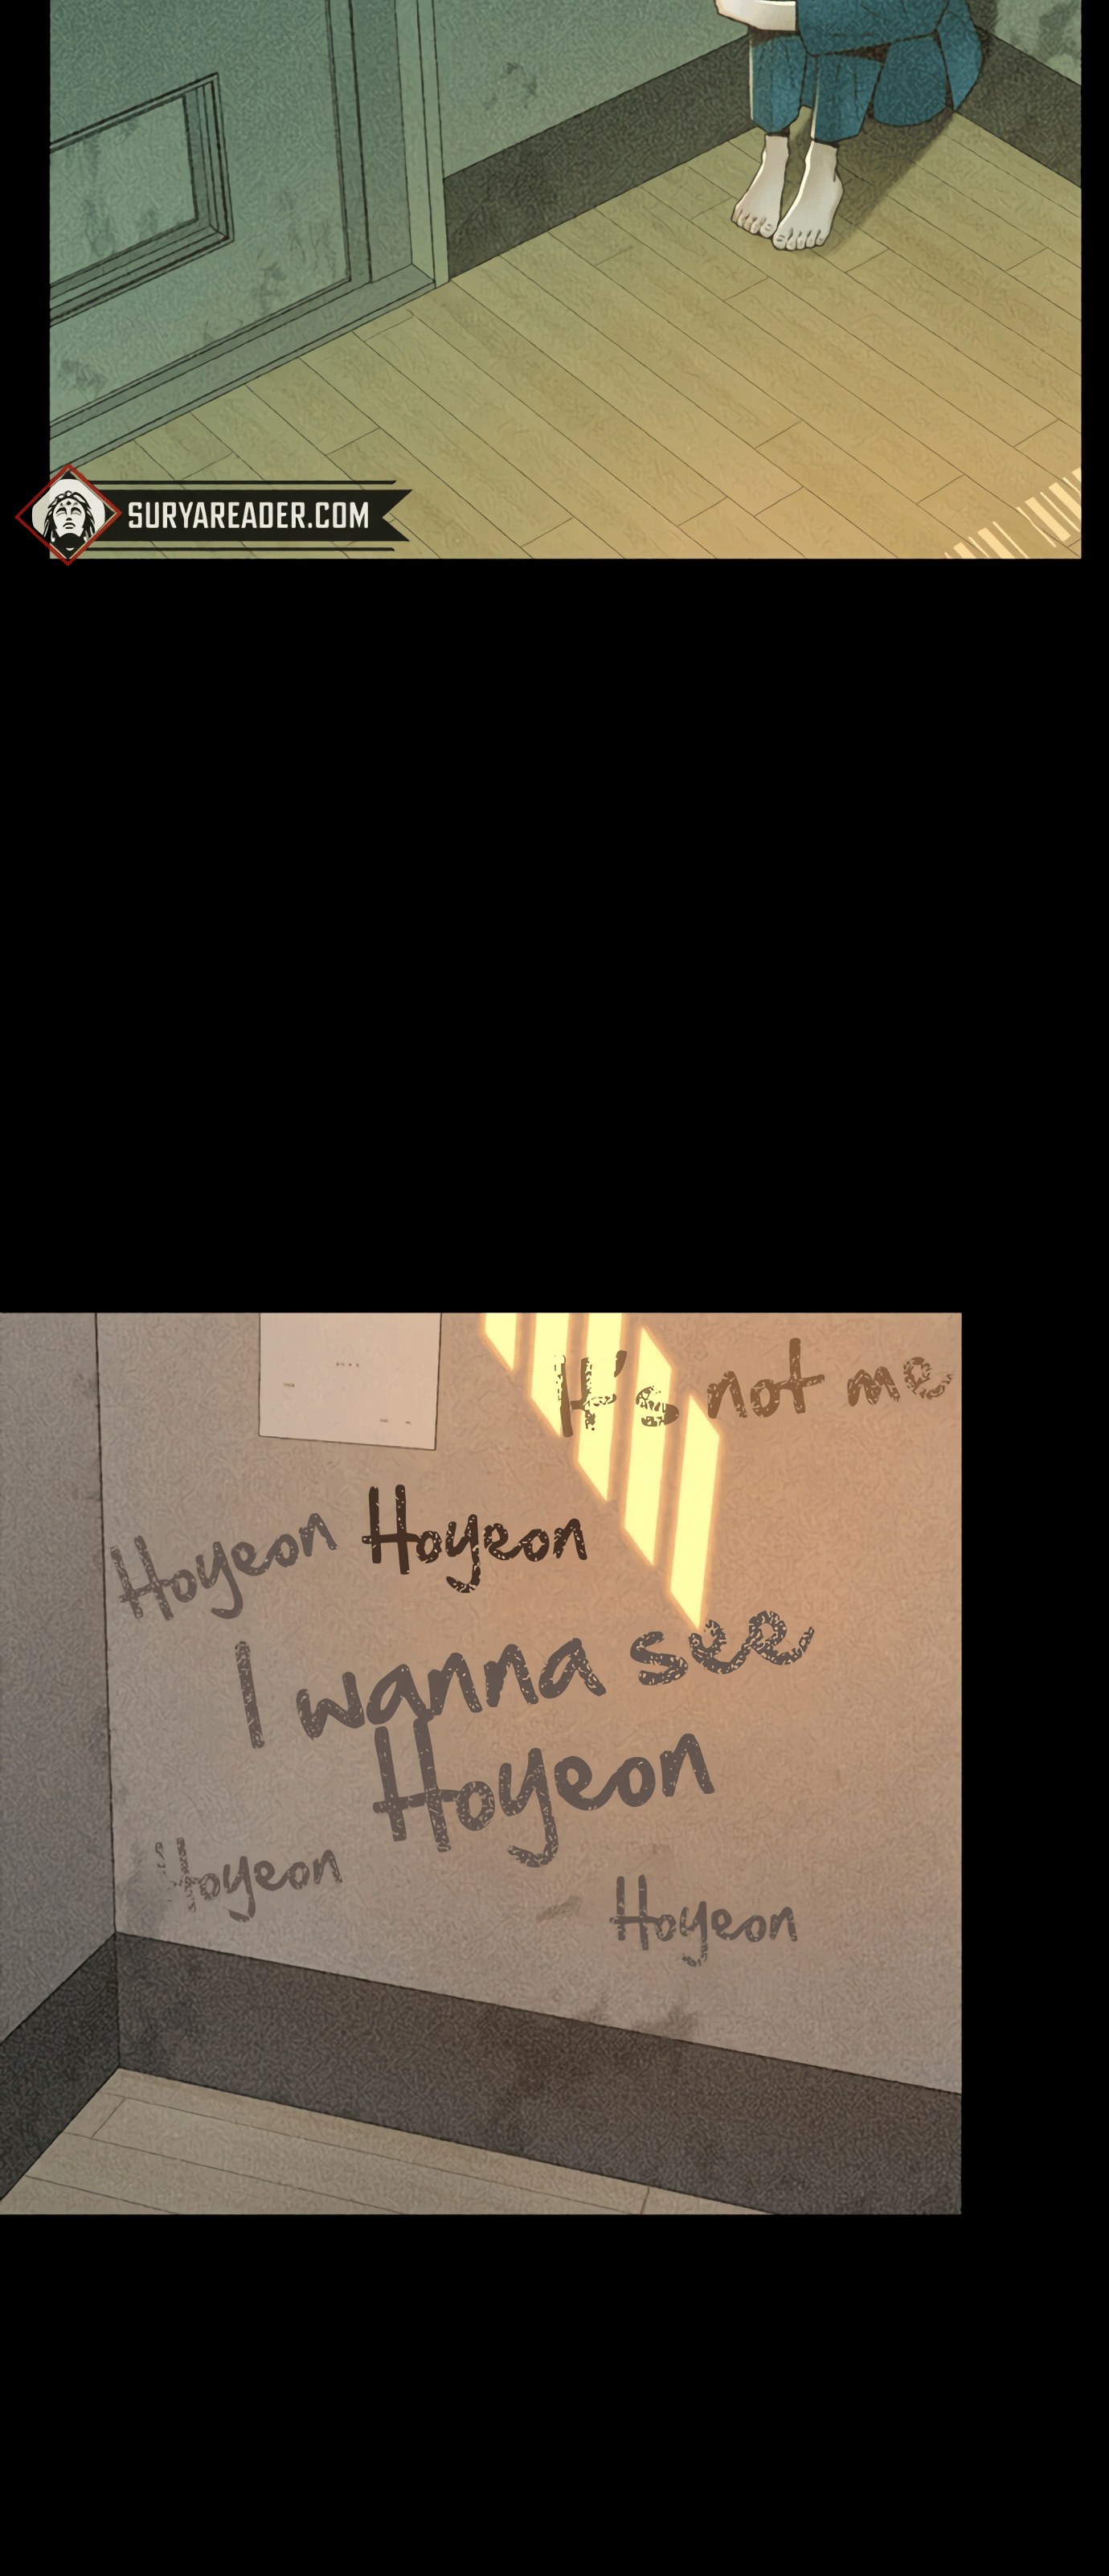 SURYAREADER.COM
It's not me
Hoyeon Hoyeon
I wanna see
Hoyeon
Hoyeon
Hoyeon